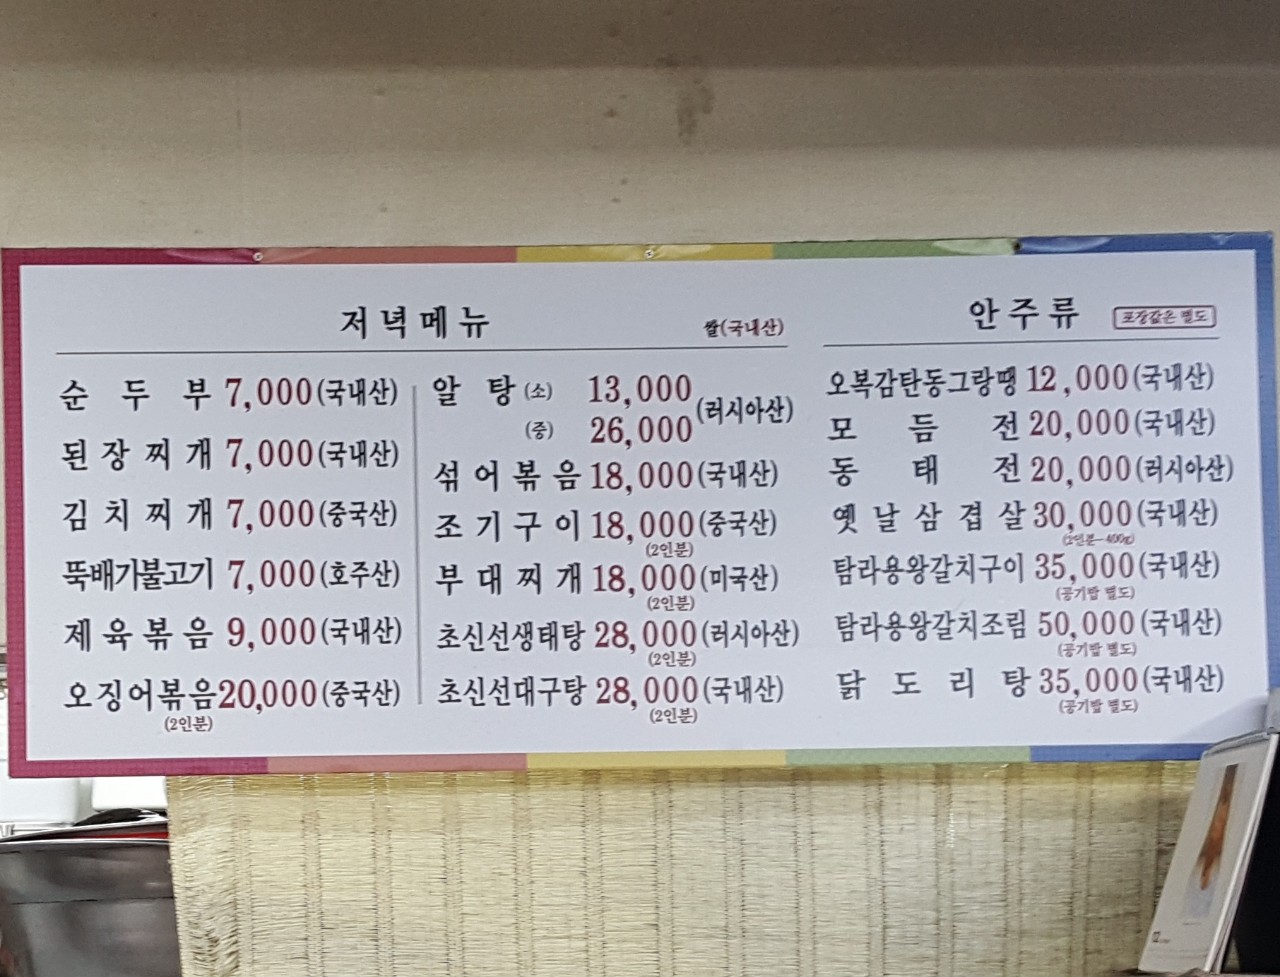 저녁메뉴
쌀(국내산)
순두부 7,000(국내산)
된장찌개 7,000(국내산)
김치찌개 7,000(중국산)
뚝배기불고기 7,000(호주산)
제육볶음 9,000(국내산)
오징어볶음 20,000(중국산)
(2인분)
알탕(소) 13,000
(중) 26,000
(러시아산)
섞어볶음 18,000(국내산)
조기구이 18,000(중국산)
(2인분)
부대찌개 18,000(미국산)
(2인분)
초신선생태탕 28,000(러시아산)
(2인분)
초신선대구탕 28,000(국내산)
(2인분)
안주류
포장값은 별도
오복감탄동그랑땡 12,000(국내산)
모듬전 20,000(국내산)
동태전 20,000(러시아산)
옛날삼겹살 30,000(국내산)
(2인분-400g)
탐라용왕갈치구이 35,000(국내산)
(공기밥 별도)
탐라용왕갈치조림 50,000(국내산)
(공기밥 별도)
닭도리탕 35,000(국내산)
(공기밥 별도)